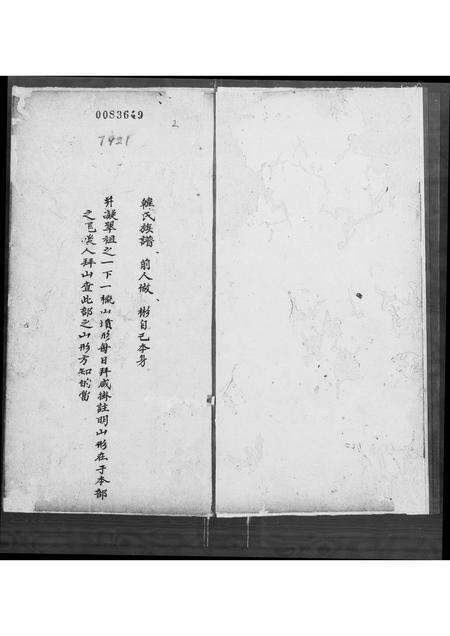 0083649
2
7921
韓氏族譜、前人做、彬自己本身
并議翠祖之一下一概山墳形每日拜或掛註明山形在于本部
之尾後人拜山查此部之山形方知的當